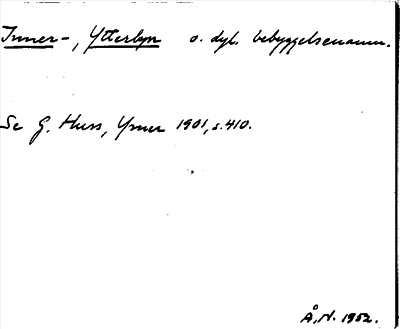 Inner-, Ytterbyn o. dyl. bebyggelsenamn.
Se G. Huss, Ymer 1901, s. 410.
Å. N. 1952.